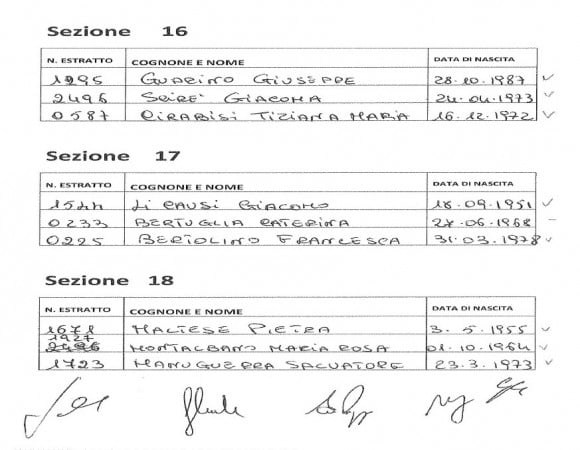 Sezione 16
N. ESTRATTO COGNOME E NOME DATA DI NASCITA
1295 GUARINO GIUSEPPE 28.10.1987
2496 SCIRE' GIACOMA 24.04.1973
0587 CIRABISI TIZIANA MARIA 16.12.1972
Sezione 17
N. ESTRATTO COGNOME E NOME DATA DI NASCITA
1544 LI CAUSI GIACOMO 18.09.1951
0233 BERTUGLIA CATERINA 27.06.1968
0225 BERTOLINO FRANCESCA 31.03.1978
Sezione 18
N. ESTRATTO COGNOME E NOME DATA DI NASCITA
1671 MALTESE PIETRA 3.5.1955
1927
2496 MONTALBANO MARIA ROSA 01.10.1964
1723 MANUGUERRA SALVATORE 23.3.1973